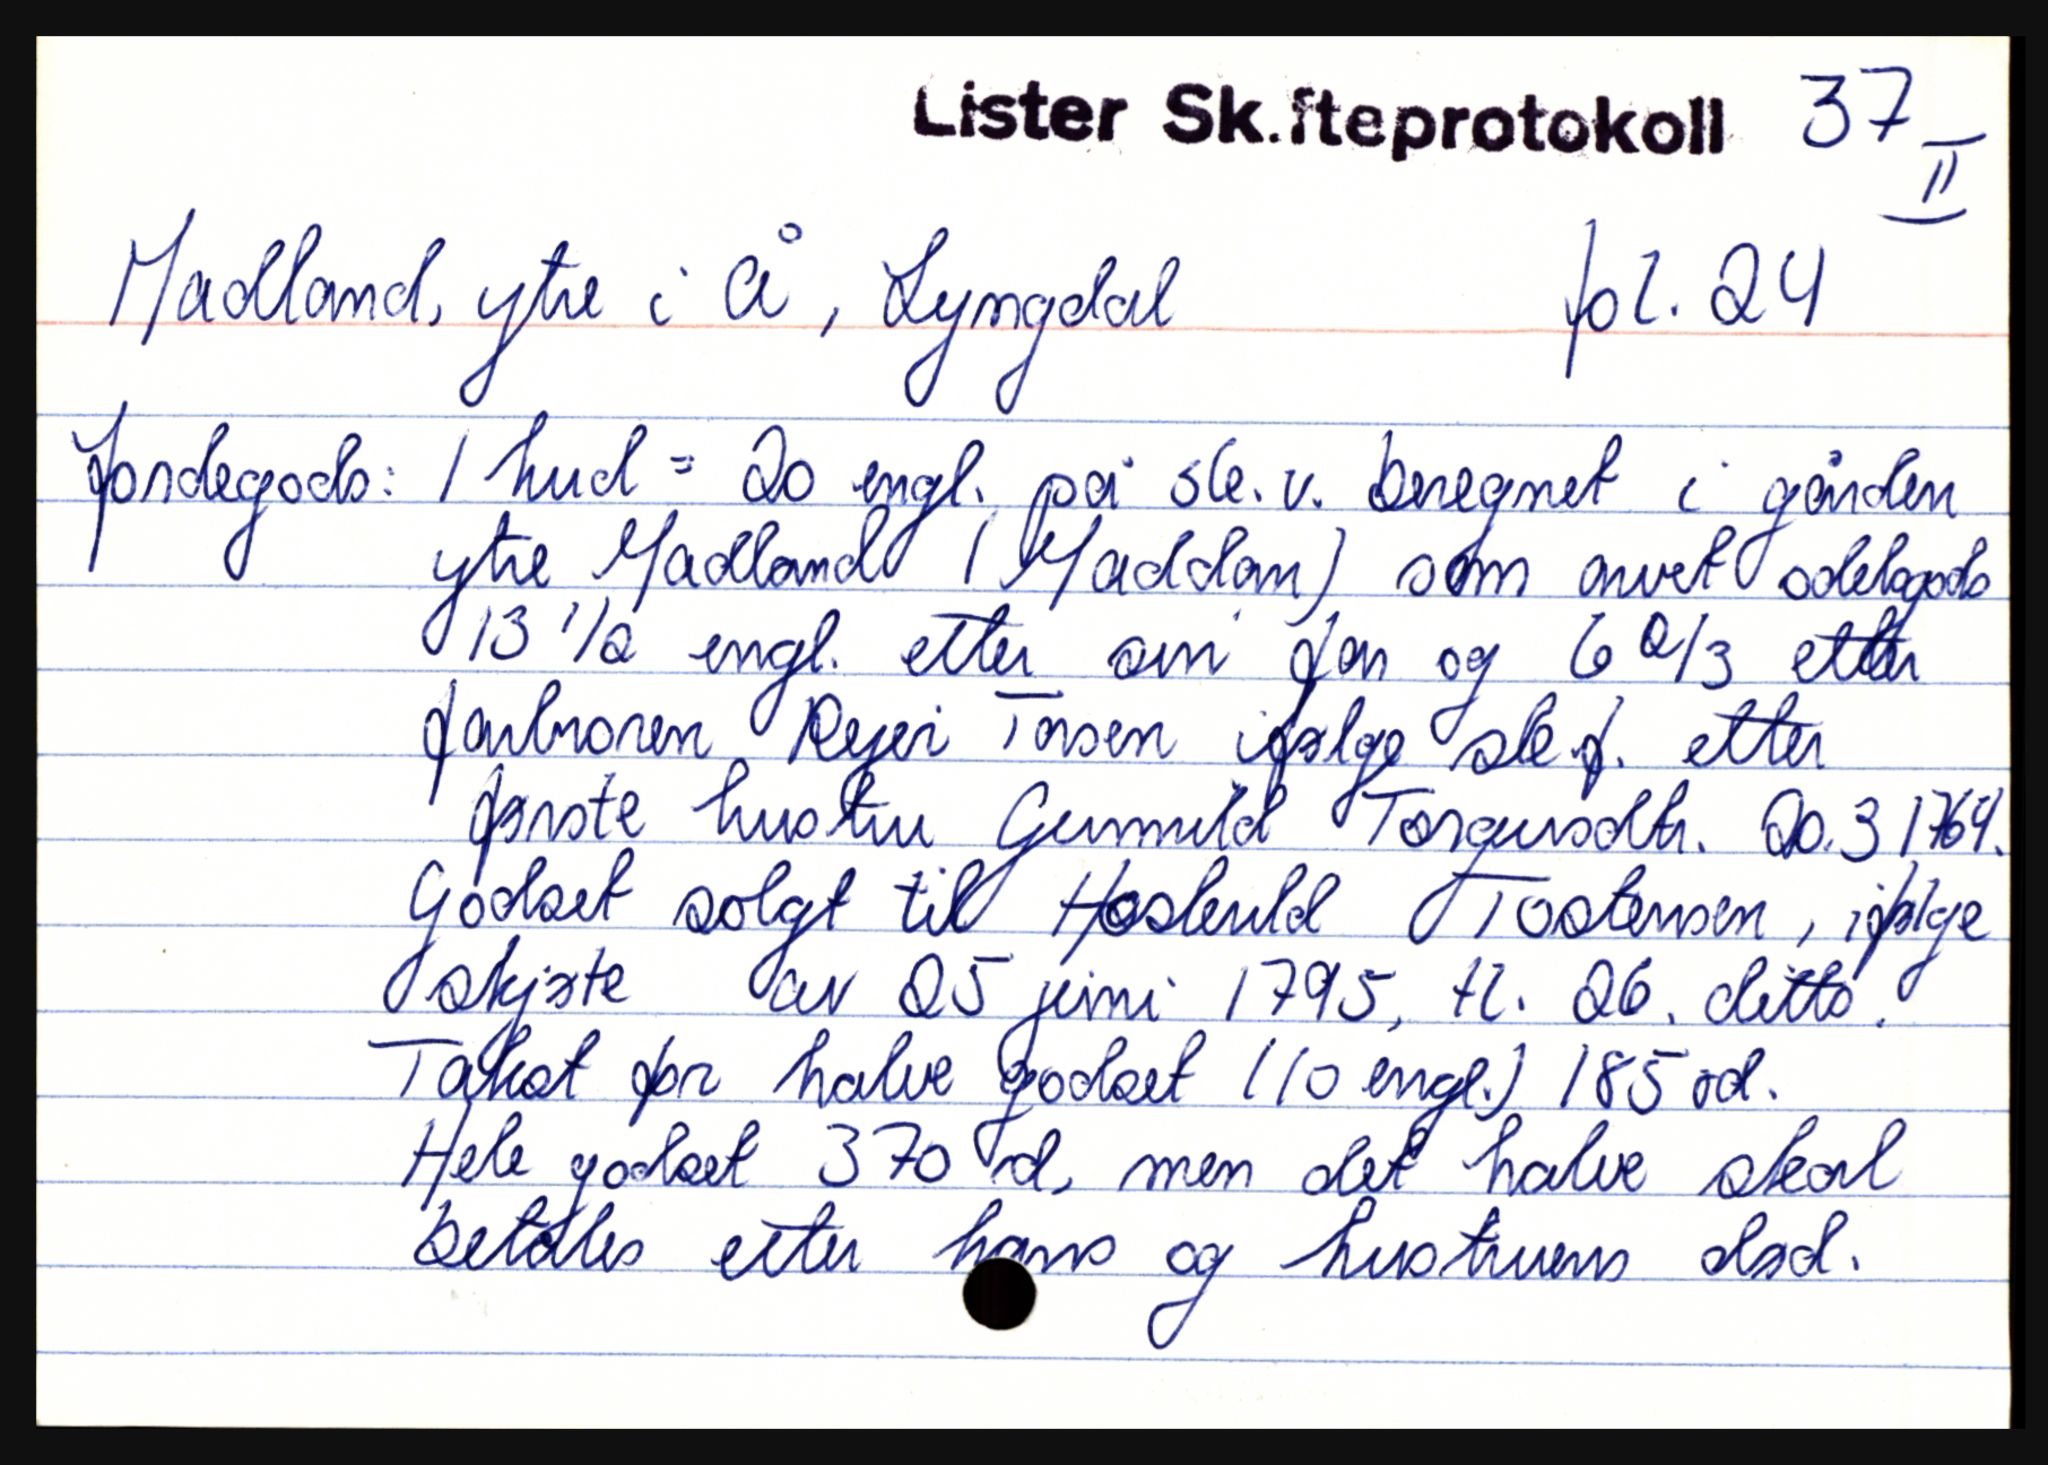 Lister Sk.fteprotokoll 37
II
Madland, ytre i Å, Lyngdal fol. 24
Jordegods: 1 hud = 20 engl. på sk. v. beregnet i gården
ytre Madland (Maddan) som arvet odelsgods
13 1/2 engl. etter sin far og 6 2/3 etter
farbroren Reyer Torsen ifølge sk.f. etter
første hustru Gunnild Torgursdtr. 20.3 1764.
Godset solgt til Hoskuld Tostensen, ifølge
skjøte av 25 juni 1795, tl. 26. ditto.
Takst for halve godset (10 engl.) 185 rd.
Hele godset 370 rd, men det halve skal
betales etter hans og hustruens død.